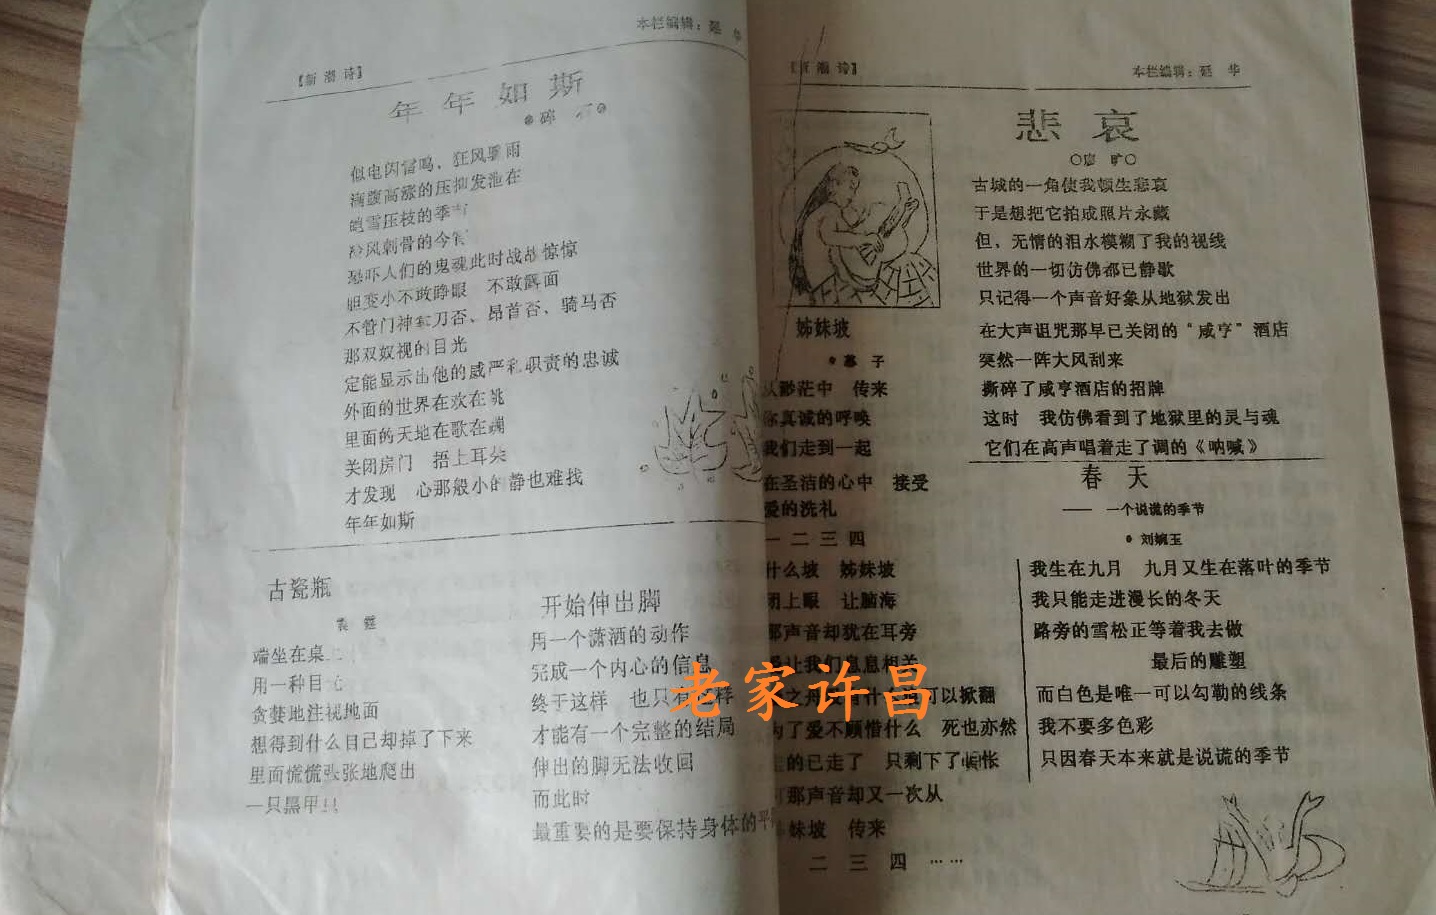 本栏编辑：延 华
【新潮诗】
年年如斯
似电闪雷鸣，狂风骤雨
满腹高涨的压抑发泄在
皑雪压枝的季
冷风刺骨的今宵
恐吓人们的鬼魂此时战战惊惊
胆变小不敢睁眼 不敢露面
不管门神拿刀否、昂首否、骑马否
那双奴视的目光
定能显示出他的威严和职责的忠诚
外面的世界在欢在跳
里面的天地在歌在
关闭房门 捂上耳朵
才发现 心那般小的静也难找
年年如斯
古瓷瓶
端坐在桌
用一种目光
贪婪地注视地面
想得到什么自己却掉了下来
里面慌慌张张地爬出
一只黑甲虫
开始伸出脚
用一个潇洒的动作
完成一个内心的信息
终于这样 也只有这样
才能有一个完整的结局
伸出的脚无法收回
而此时
最重要的是要保持身体的平
【新潮诗】
本栏编辑：延 华
姊妹坡
●慕 子
从渺茫中 传来
你真诚的呼唤
我们走到一起
在圣洁的心中 接受
爱的洗礼
一二三四
什么坡 姊妹坡
闭上眼 让脑海
那声音却犹在耳旁
爱让我们息息相关
之舟没有什么 可以掀翻
为了爱不顾惜什么 死也亦然
的已走了 只剩下了惆怅
可那声音却又一次从
姊妹坡 传来
二 三 四 ……
悲哀
○廖 旷○
古城的一角使我顿生悲哀
于是想把它拍成照片永藏
但，无情的泪水模糊了我的视线
世界的一切仿佛都已静歇
只记得一个声音好象从地狱发出
在大声诅咒那早已关闭的“咸亨”酒店
突然一阵大风刮来
撕碎了咸亨酒店的招牌
这时 我仿佛看到了地狱里的灵与魂
它们在高声唱着走了调的《呐喊》
春 天
—— 一个说谎的季节
●刘婉玉
我生在九月 九月又生在落叶的季节
我只能走进漫长的冬天
路旁的雪松正等着我去做
最后的雕塑
而白色是唯一可以勾勒的线条
我不要多色彩
只因春天本来就是说谎的季节
老家许昌